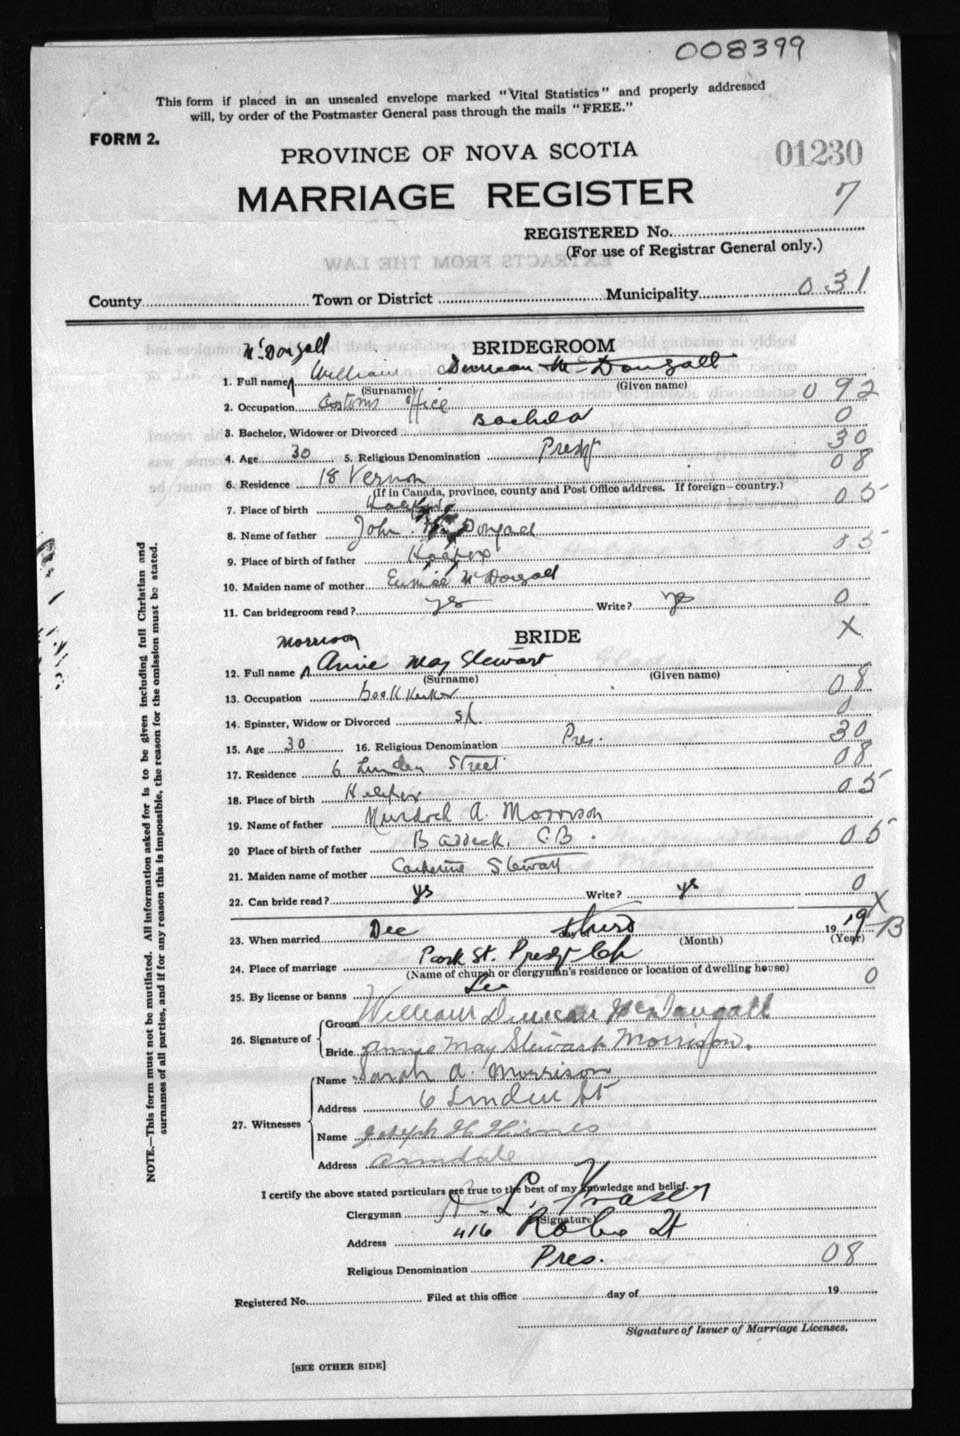 008399
This form if placed in an unsealed envelope marked "Vital Statistics" and properly addressed
will, by order of the Postmaster General pass through the mails "FREE."
FORM 2.
PROVINCE OF NOVA SCOTIA
01230
MARRIAGE REGISTER
7
REGISTERED No.
(For use of Registrar General only.)
EXTRACTS FROM THE LAW
County Town or District Municipality 031
McDougall
BRIDEGROOM
1. Full name William Duncan McDougall
(Surname) (Given name)
2. Occupation Customs Office 092
3. Bachelor, Widower or Divorced Bachelor 0
4. Age 30 5. Religious Denomination Presby 30
6. Residence 18 Vernon 08
(If in Canada, province, county and Post Office address. If foreign—country.)
7. Place of birth 05
8. Name of father John McDougall
9. Place of birth of father Halifax 05
10. Maiden name of mother McDougall
11. Can bridegroom read? yes Write? yes 0
Morrison
BRIDE
X
12. Full name Annie May Stewart
(Surname) (Given name)
13. Occupation bookkeeper 08
14. Spinster, Widow or Divorced 0
15. Age 30 16. Religious Denomination Pres. 30
17. Residence 6 Linden Street 08
18. Place of birth Halifax 05
19. Name of father Murdoch A. Morrison
20 Place of birth of father Baddeck, C.B. 05
21. Maiden name of mother Catherine Stewart
22. Can bride read? yes Write? yes 0
X
23. When married Dec day of third 19 19 13
(Month) (Year)
24. Place of marriage Park St. Presby Ch
(Name of church or clergyman's residence or location of dwelling house)
25. By license or banns Lic 0
26. Signature of Groom William Duncan McDougall
Bride Annie May Stewart Morrison.
27. Witnesses Name Sarah A. Morrison
Address 6 Linden St
Name Joseph H
Address Armdale
I certify the above stated particulars are true to the best of my knowledge and belief.
Clergyman A. L. Fraser
(Signature)
Address 416 Robie St
Religious Denomination Pres. 08
Registered No. Filed at this office day of 19
Signature of Issuer of Marriage Licenses.
[SEE OTHER SIDE]
NOTE.—This form must not be mutilated. All information asked for is to be given including full Christian and
surnames of all parties, and if for any reason this is impossible, the reason for the omission must be stated.